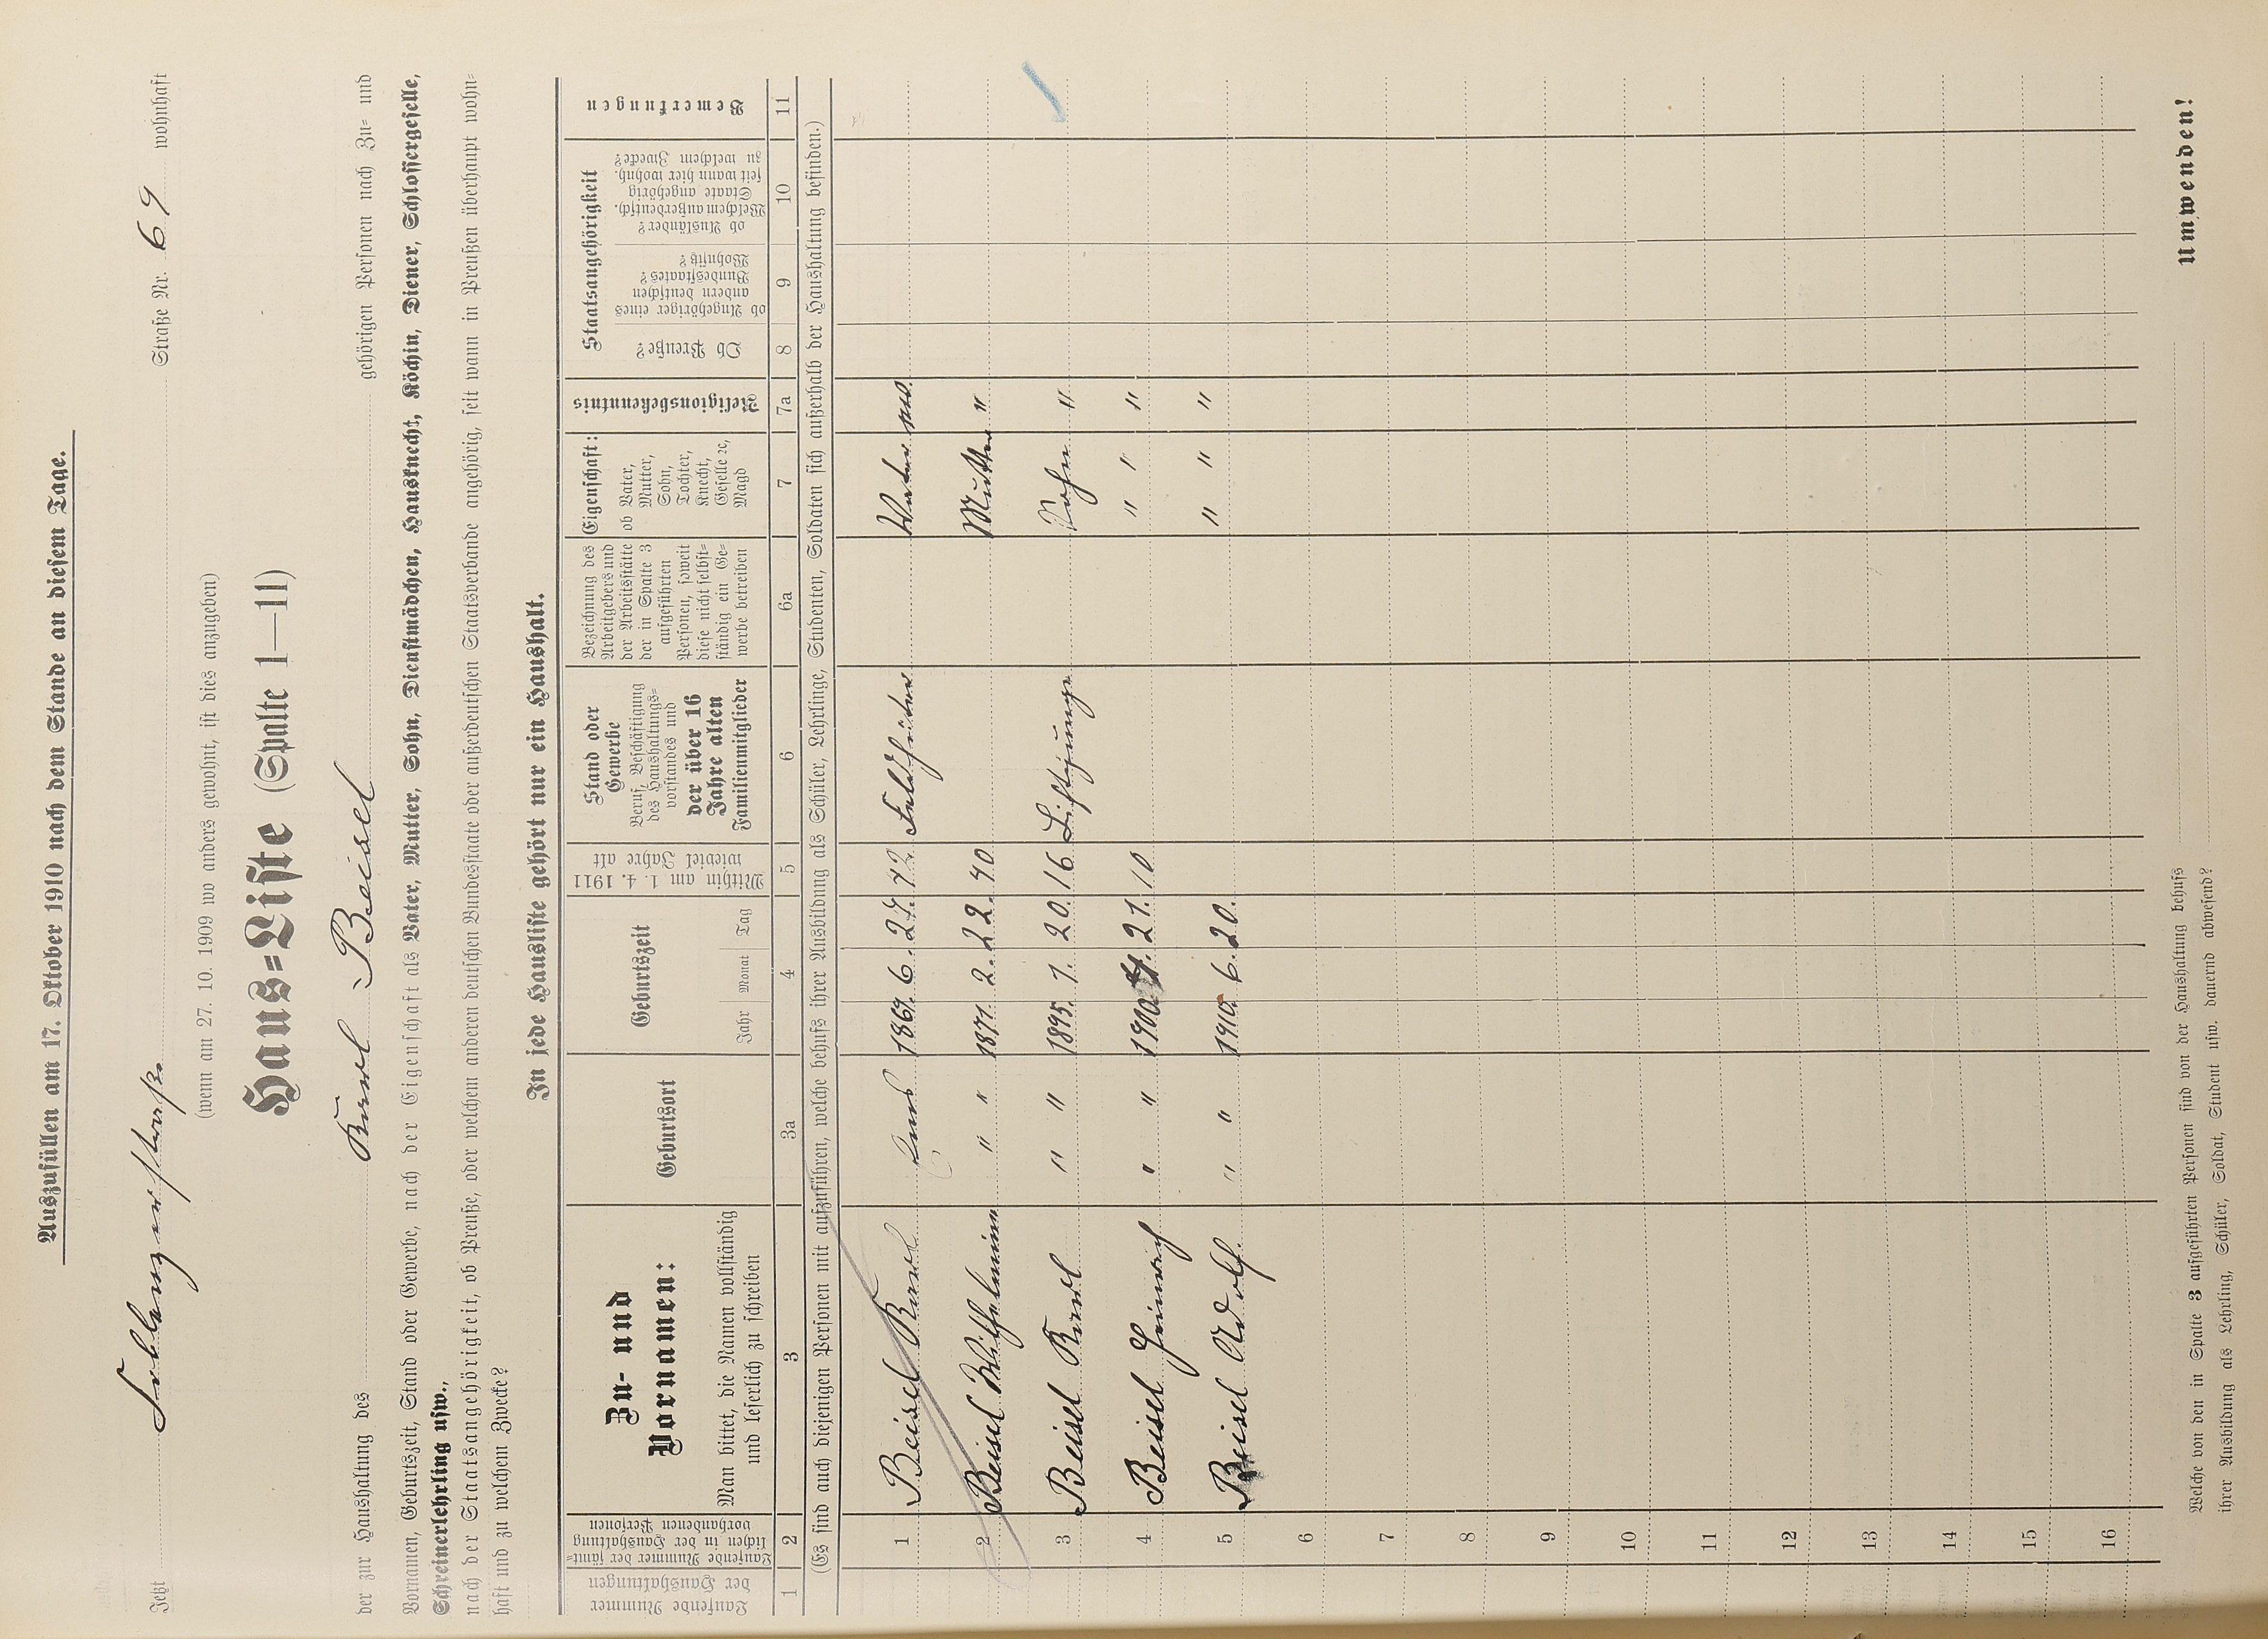 Auszufüllen am 17. Oktober 1910 nach dem Stande an diesem Tage.
Jetzt Coblenzerstraße Straße Nr. 69 wohnhaft
(wenn am 27. 10. 1909 wo anders gewohnt, ist dies anzugeben)
Haus=Liste (Spalte 1—11)
der zur Haushaltung des Karl Beisel gehörigen Personen nach Zu= und
Vornamen, Geburtszeit, Stand oder Gewerbe, nach der Eigenschaft als Vater, Mutter, Sohn, Dienstmädchen, Hausknecht, Köchin, Diener, Schlossergeselle,
Schreinerlehrling usw.,
nach der Staatsangehörigkeit, ob Preuße, oder welchem anderen deutschen Bundesstaate oder außerdeutschen Staatsverbande angehörig, seit wann in Preußen überhaupt wohn=
haft und zu welchem Zwecke?
In jede Hausliste gehört nur ein Haushalt.
Laufende Nummer
der Haushaltungen
Laufende Nummer der sämt=
lichen in der Haushaltung
vorhandenen Personen
Zu- und
Vornamen:
Man bittet, die Namen vollständig
und leserlich zu schreiben
Geburtsort
Geburtszeit
Jahr Monat Tag
Mithin am 1. 4. 1911
wieviel Jahre alt
Stand oder
Gewerbe
Beruf, Beschäftigung
des Haushaltungs=
vorstandes und
der über 16
Jahre alten
Familienmitglieder
Bezeichnung des
Arbeitgebers und
der Arbeitsstätte
der in Spalte 3
aufgeführten
Personen, soweit
diese nicht selbst=
ständig ein Ge=
werbe betreiben
Eigenschaft:
ob Vater,
Mutter,
Sohn,
Tochter,
Knecht,
Geselle ec,
Magd
Religionsbekenntnis
Staatsangehörigkeit
Ob Preuße?
ob Angehöriger eines
andern deutschen
Bundesstaates?
Wohnsitz?
ob Ausländer?
Welchem außerdeutsch.
Staate angehörig
seit wann hier wohnh.
zu welchem Zwecke?
Bemerkungen
1 2 3 3a 4 5 6 6a 7 7a 8 9 10 11
(Es sind auch diejenigen Personen mit aufzuführen, welche behufs ihrer Ausbildung als Schüler, Lehrlinge, Studenten, Soldaten sich außerhalb der Haushaltung befinden.)
1 Beisel Karl Ems 1869. 6. 27. 42 Feldhüter Vater
2 Beisel Wilhelmine " " 1871. 2. 22. 40 Mutter "
3 Beisel Karl " " 1895. 1. 20. 16 Sohn "
4 Beisel Heinrich " " 1900 21. 10 " " "
5 Beisel Adolf. " " 1910. 6. 20. " " "
6
7
8
9
10
11
12
13
14
15
16
Welche von den in Spalte 3 aufgeführten Personen sind von der Haushaltung behufs
ihrer Ausbildung als Lehrling, Schüler, Soldat, Student usw. dauernd abwesend?
Umwenden!